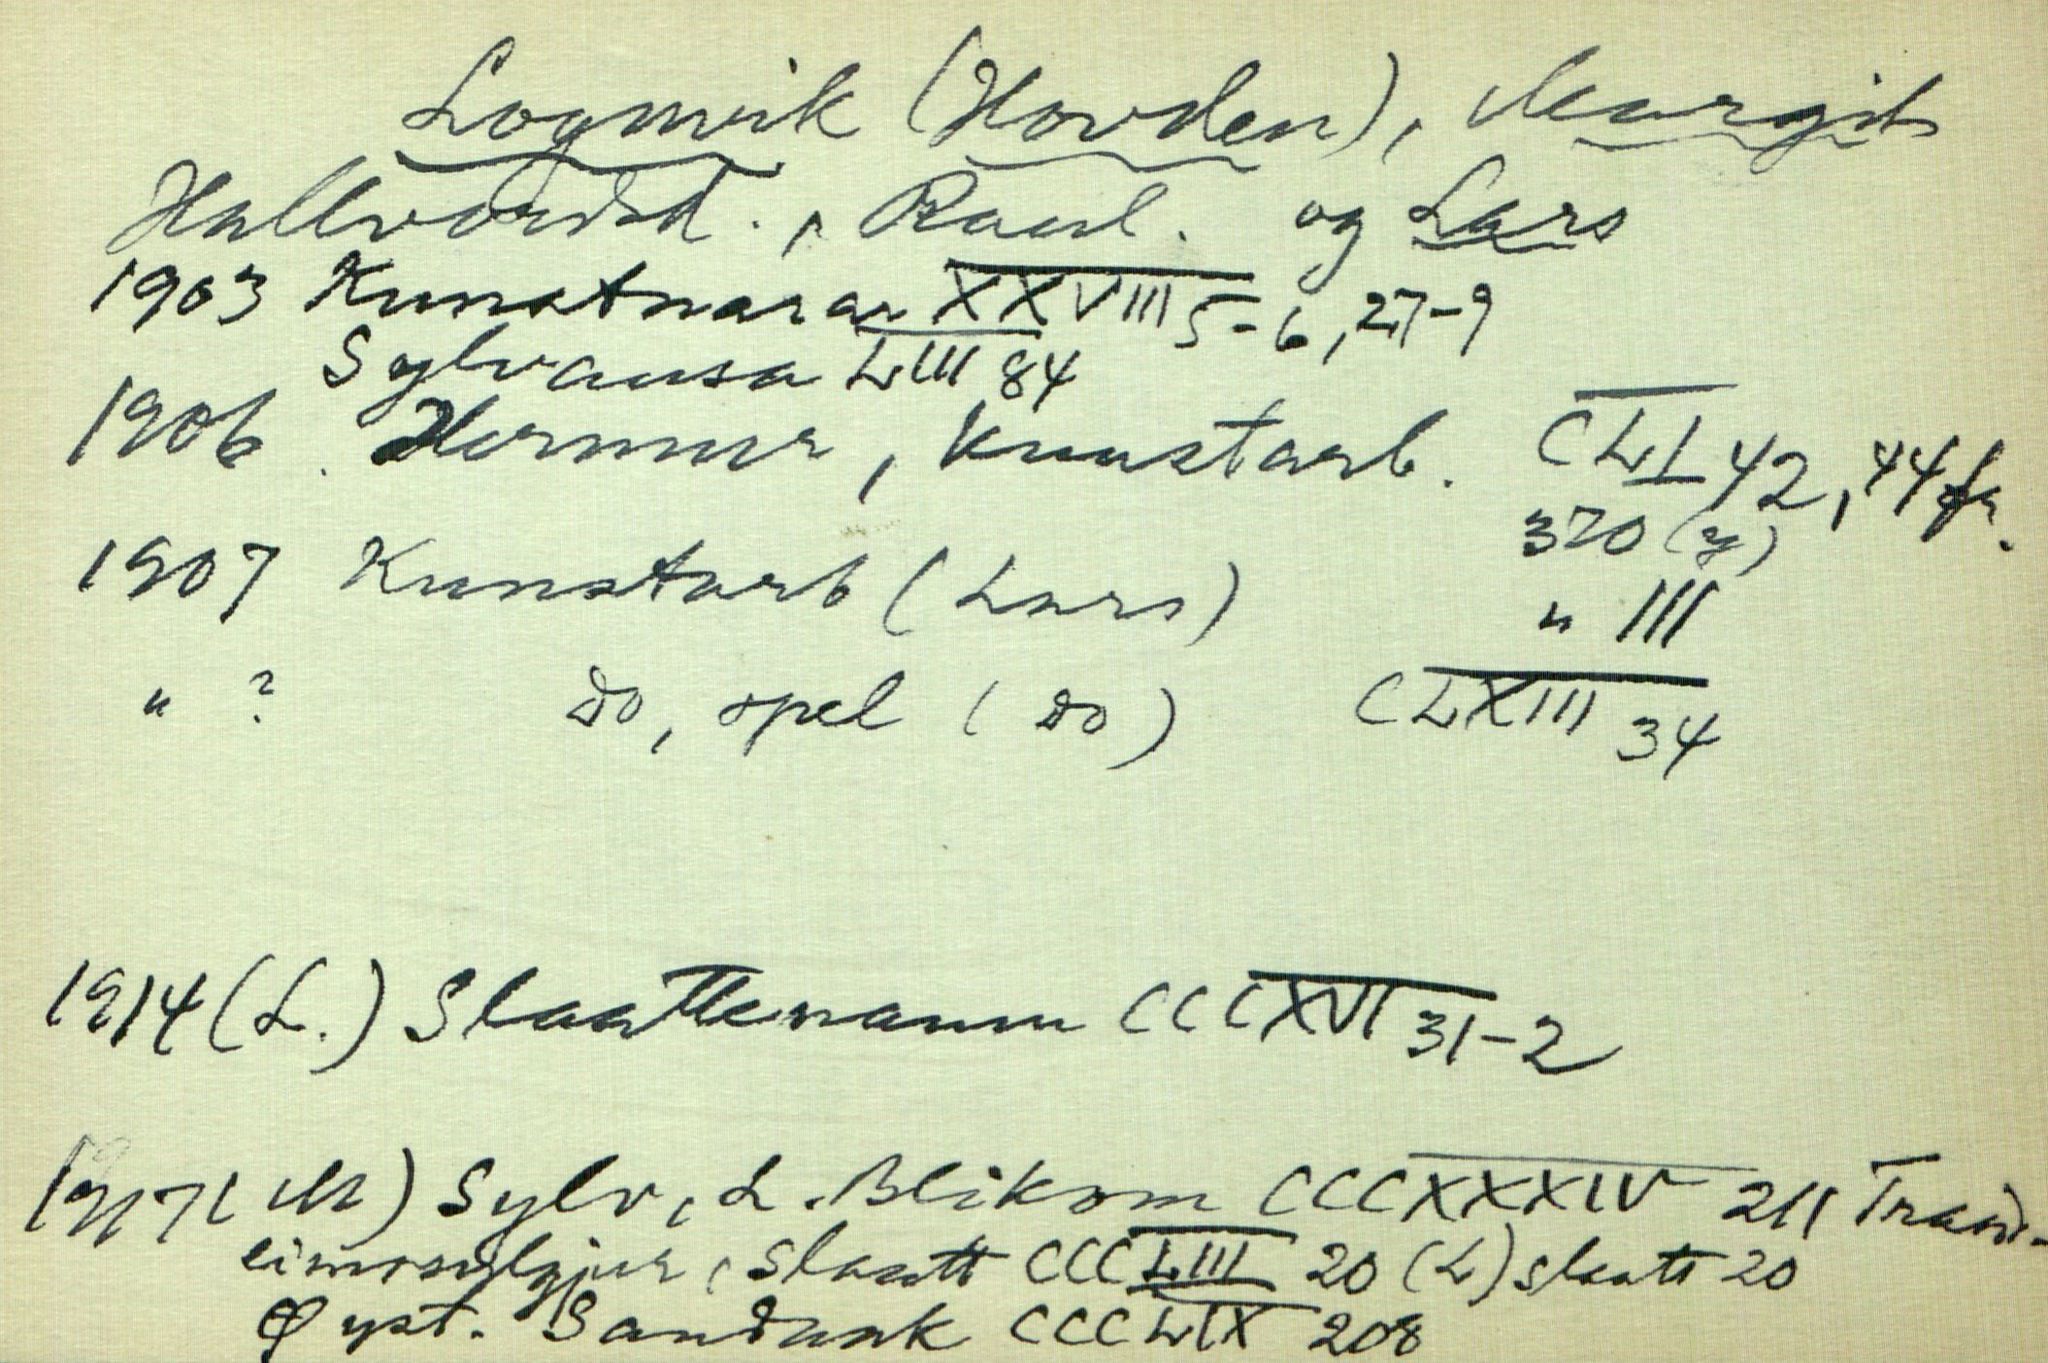 Lognvik (Hovden), Margit
Hallvordsd., Raul. og Lars
1903 Kunstnarar XXVIII 5-6, 27-9
Sylvausa LIII 84
1906. Hermur, kunstarb. CLI 42, 44 fr.
370 (y)
1907 Kunstarb (Lars) " III
" ? do, spel (do) CLXIII 34
1914 (L.) Slaattemann CCCXVI 31-2
1917 (M) Sylv, L. Blikom CCCXXXIV 211 Trand-
eimssylgjur, Slaatt CCCLIII 20 (L) slaatt 20
Øyst. Sandsak CCCLIX 208